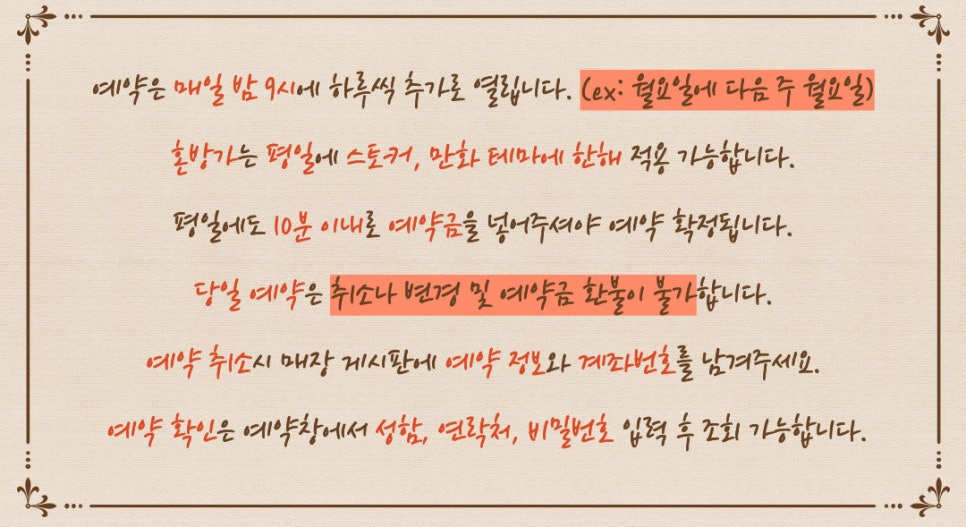 예약은 매일 밤 9시에 하루씩 추가로 열립니다. (ex: 월요일에 다음 주 월요일)
혼방가는 평일에 스토커, 만화 테마에 한해 적용 가능합니다.
평일에도 10분 이내로 예약금을 넣어주셔야 예약 확정됩니다.
당일 예약은 취소나 변경 및 예약금 환불이 불가합니다.
예약 취소시 매장 게시판에 예약 정보와 계좌번호를 남겨주세요.
예약 확인은 예약창에서 성함, 연락처, 비밀번호 입력 후 조회 가능합니다.